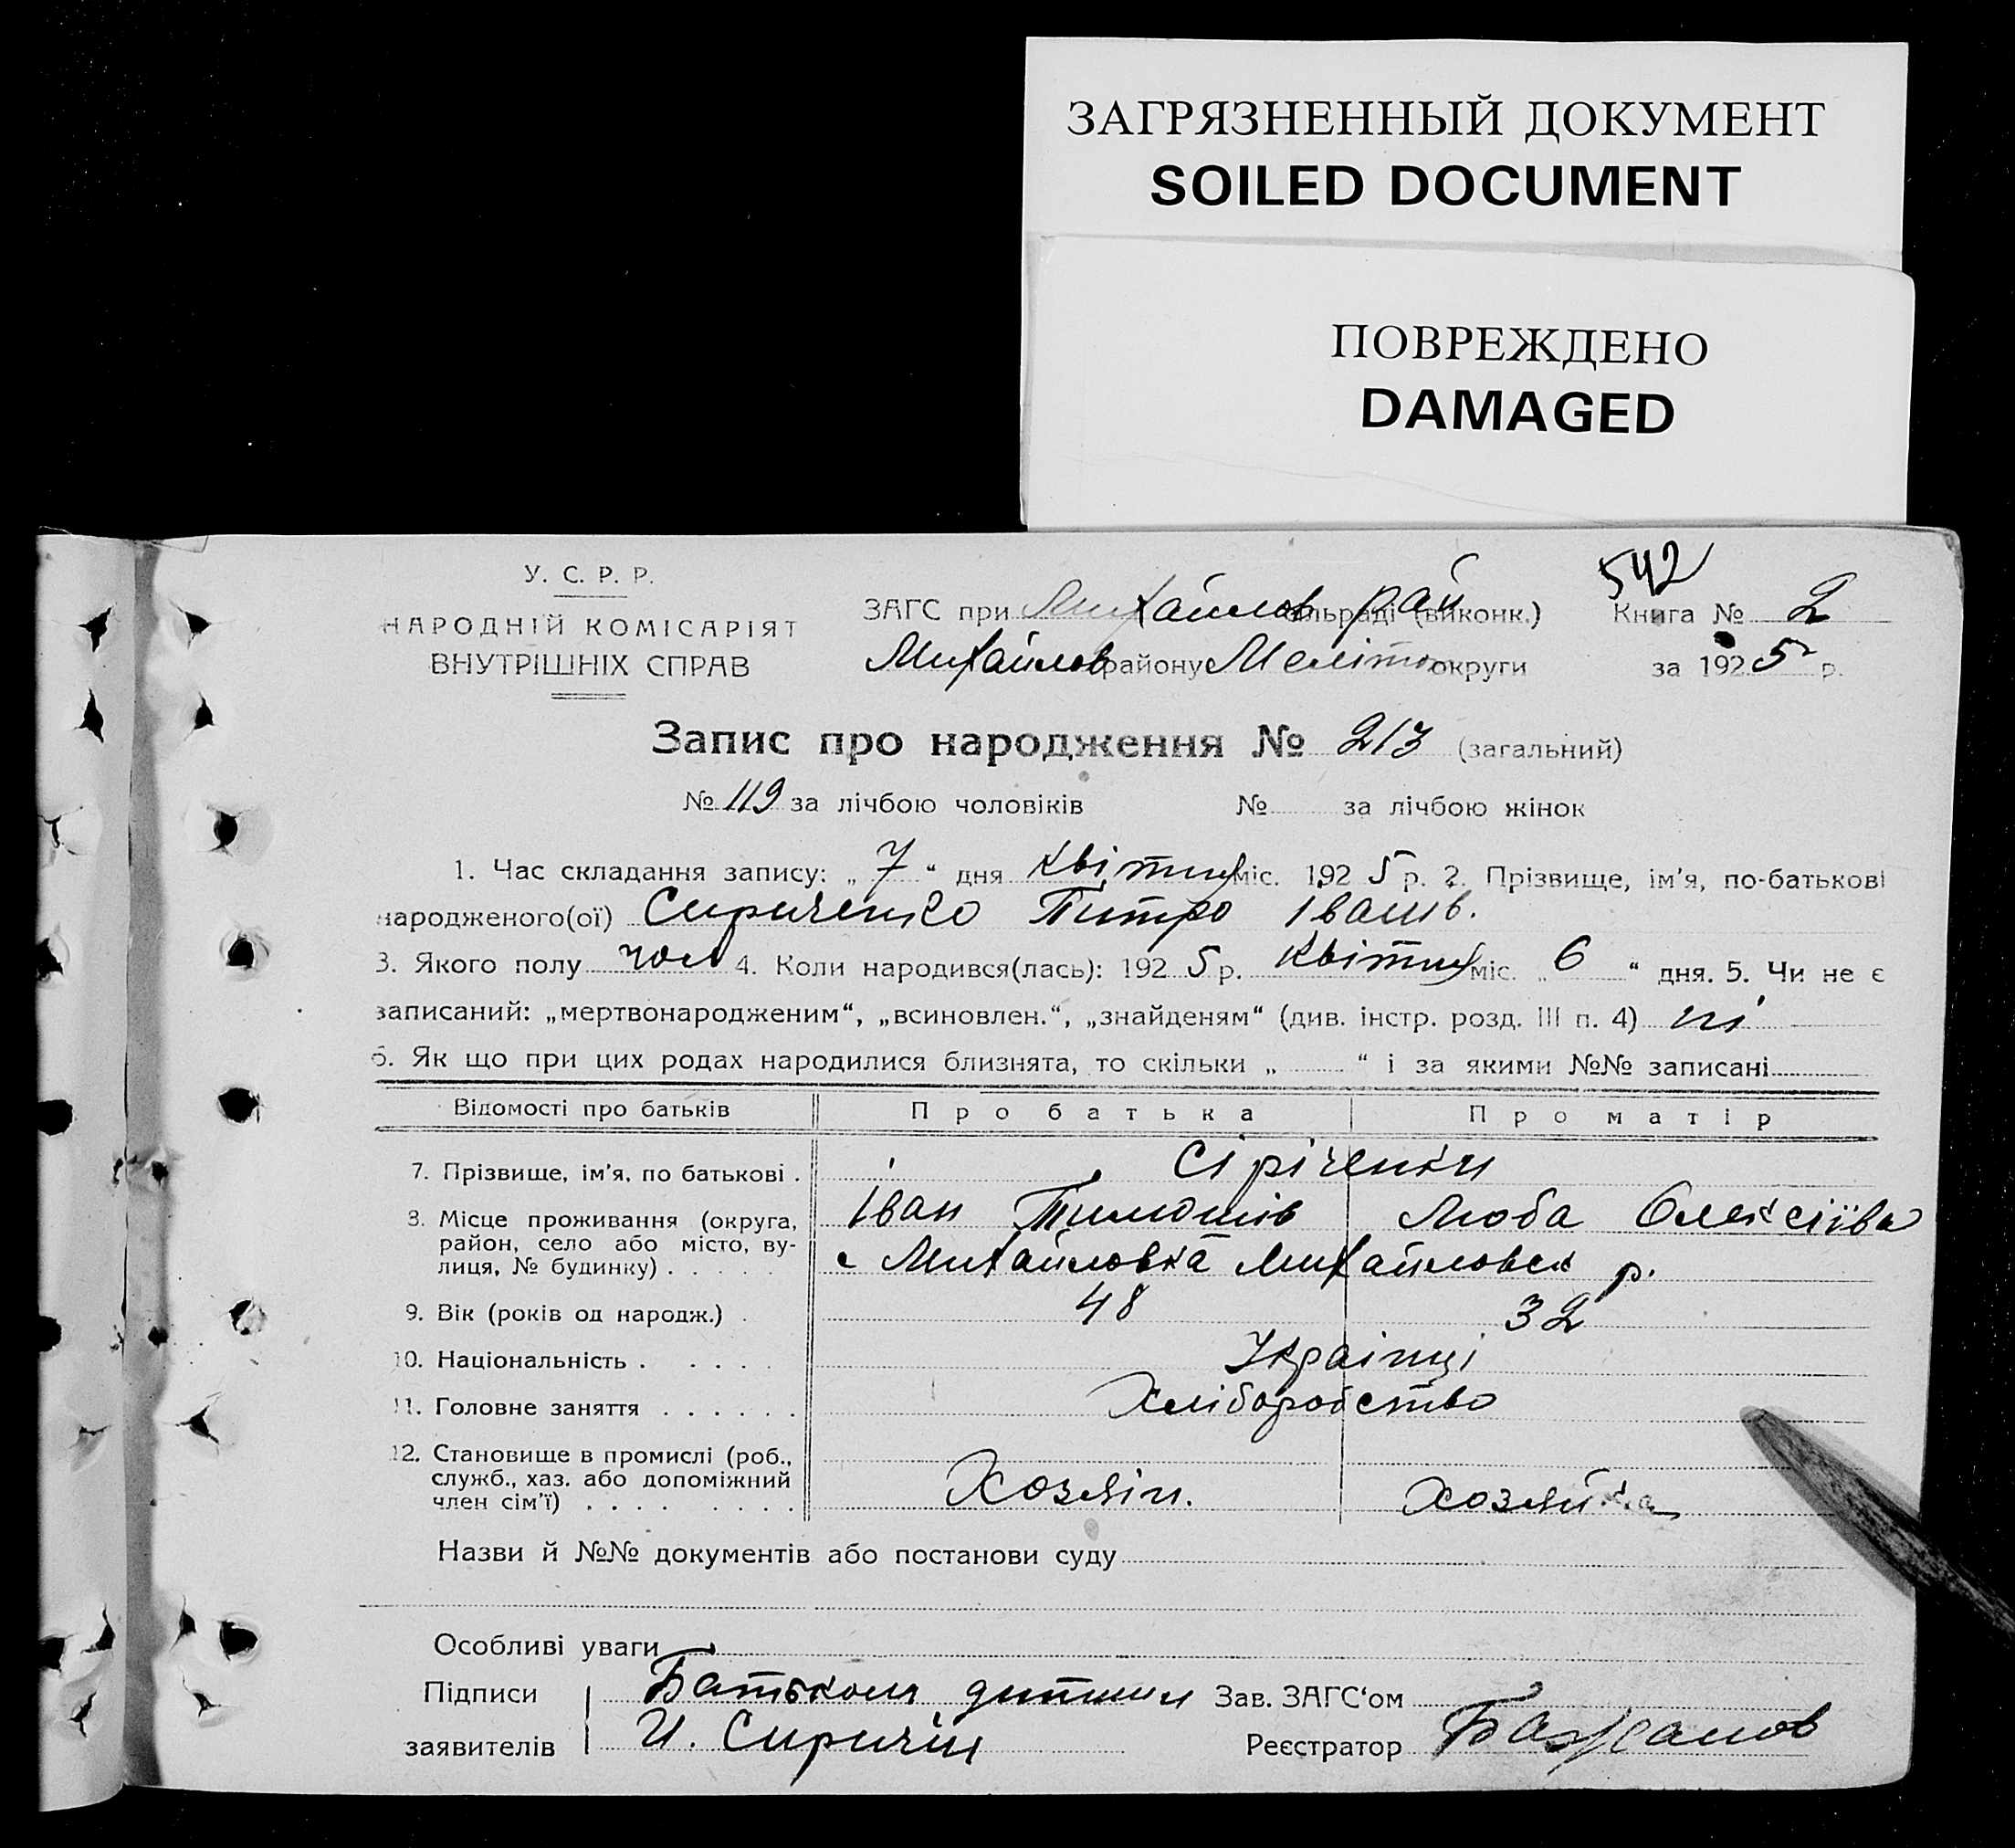 ЗАГРЯЗНЕННЫЙ ДОКУМЕНТ
SOILED DOCUMENT
ПОВРЕЖДЕНО
DAMAGED
542
У. С. Р. Р.
НАРОДНІЙ КОМІСАРІЯТ
ВНУТРІШНІХ СПРАВ
ЗАГС при Михайлов рай сільраді (виконк.) Книга № 2
Михайлов району Меліто округи за 1925 р.
Запис про народження № 213 (загальний)
№ 119 за лічбою чоловіків № за лічбою жінок
1. Час складання запису: „ 7 “ дня квітня міс. 1925 р. 2. Прізвище, ім'я, по-батькові
народженого(ої) Сириченко Питро Іванів.
3. Якого полу чол 4. Коли народився(лась): 1925 р. квітня міс. „ 6 “ дня. 5. Чи не є
записаний: „мертвонародженим“, „всиновлен.“, „знайденям“ (див. інстр. розд. III п. 4) ні
6. Як що при цих родах народилися близнята, то скільки „ “ і за якими №№ записані
Відомості про батьків Про батька Про матір
7. Прізвище, ім'я, по батькові . Сіріченки
Іван Тимошів Люба Олексіїва
8. Місце проживання (округа, район, село або місто, вулиця, № будинку) . . . . .
с Михайловка Михайловск р.
9. Вік (років од народж.) . 48 32
10. Національність . . . . . Украінці
11. Головне заняття . . . . . . Хліборобство
12. Становище в промислі (роб., служб., хаз. або допоміжний член сім'ї) . . . . . . . . Хозяін. хозяйка
Назви й №№ документів або постанови суду
Особливі уваги
Підписи Батьком дитини Зав. ЗАГС'ом
заявителів И. Сиричін Реєстратор Бажанов